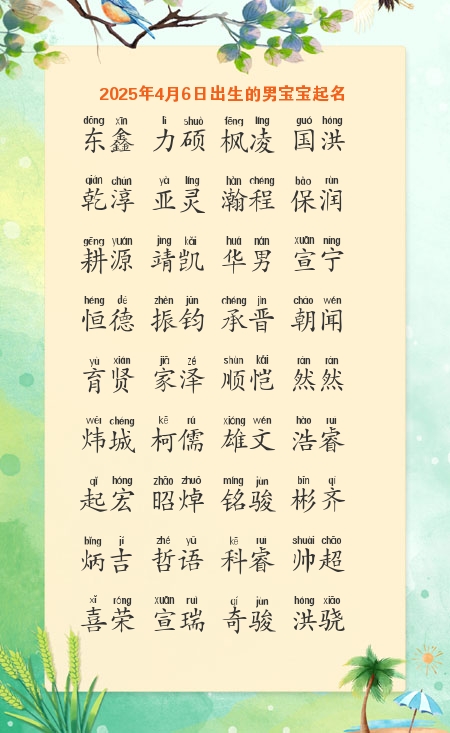 2025年4月6日出生的男宝宝起名
dōng xīn lì shuò fēng líng guó hóng
东鑫 力硕 枫凌 国洪
qián chún yà líng hàn chéng bǎo rùn
乾淳 亚灵 瀚程 保润
gēng yuán jìng kǎi huá nán xuān níng
耕源 靖凯 华男 宣宁
héng dé zhèn jūn chéng jìn cháo wén
恒德 振钧 承晋 朝闻
yù xián jiā zé shùn kǎi rán rán
育贤 家泽 顺恺 然然
wěi chéng kē rú xióng wén hào ruì
炜城 柯儒 雄文 浩睿
qǐ hóng zhāo zhuō míng jùn bīn qí
起宏 昭焯 铭骏 彬齐
bǐng jí zhé yǔ kē ruì shuài chāo
炳吉 哲语 科睿 帅超
xǐ róng xuān ruì qí jùn hóng xiāo
喜荣 宣瑞 奇骏 洪骁